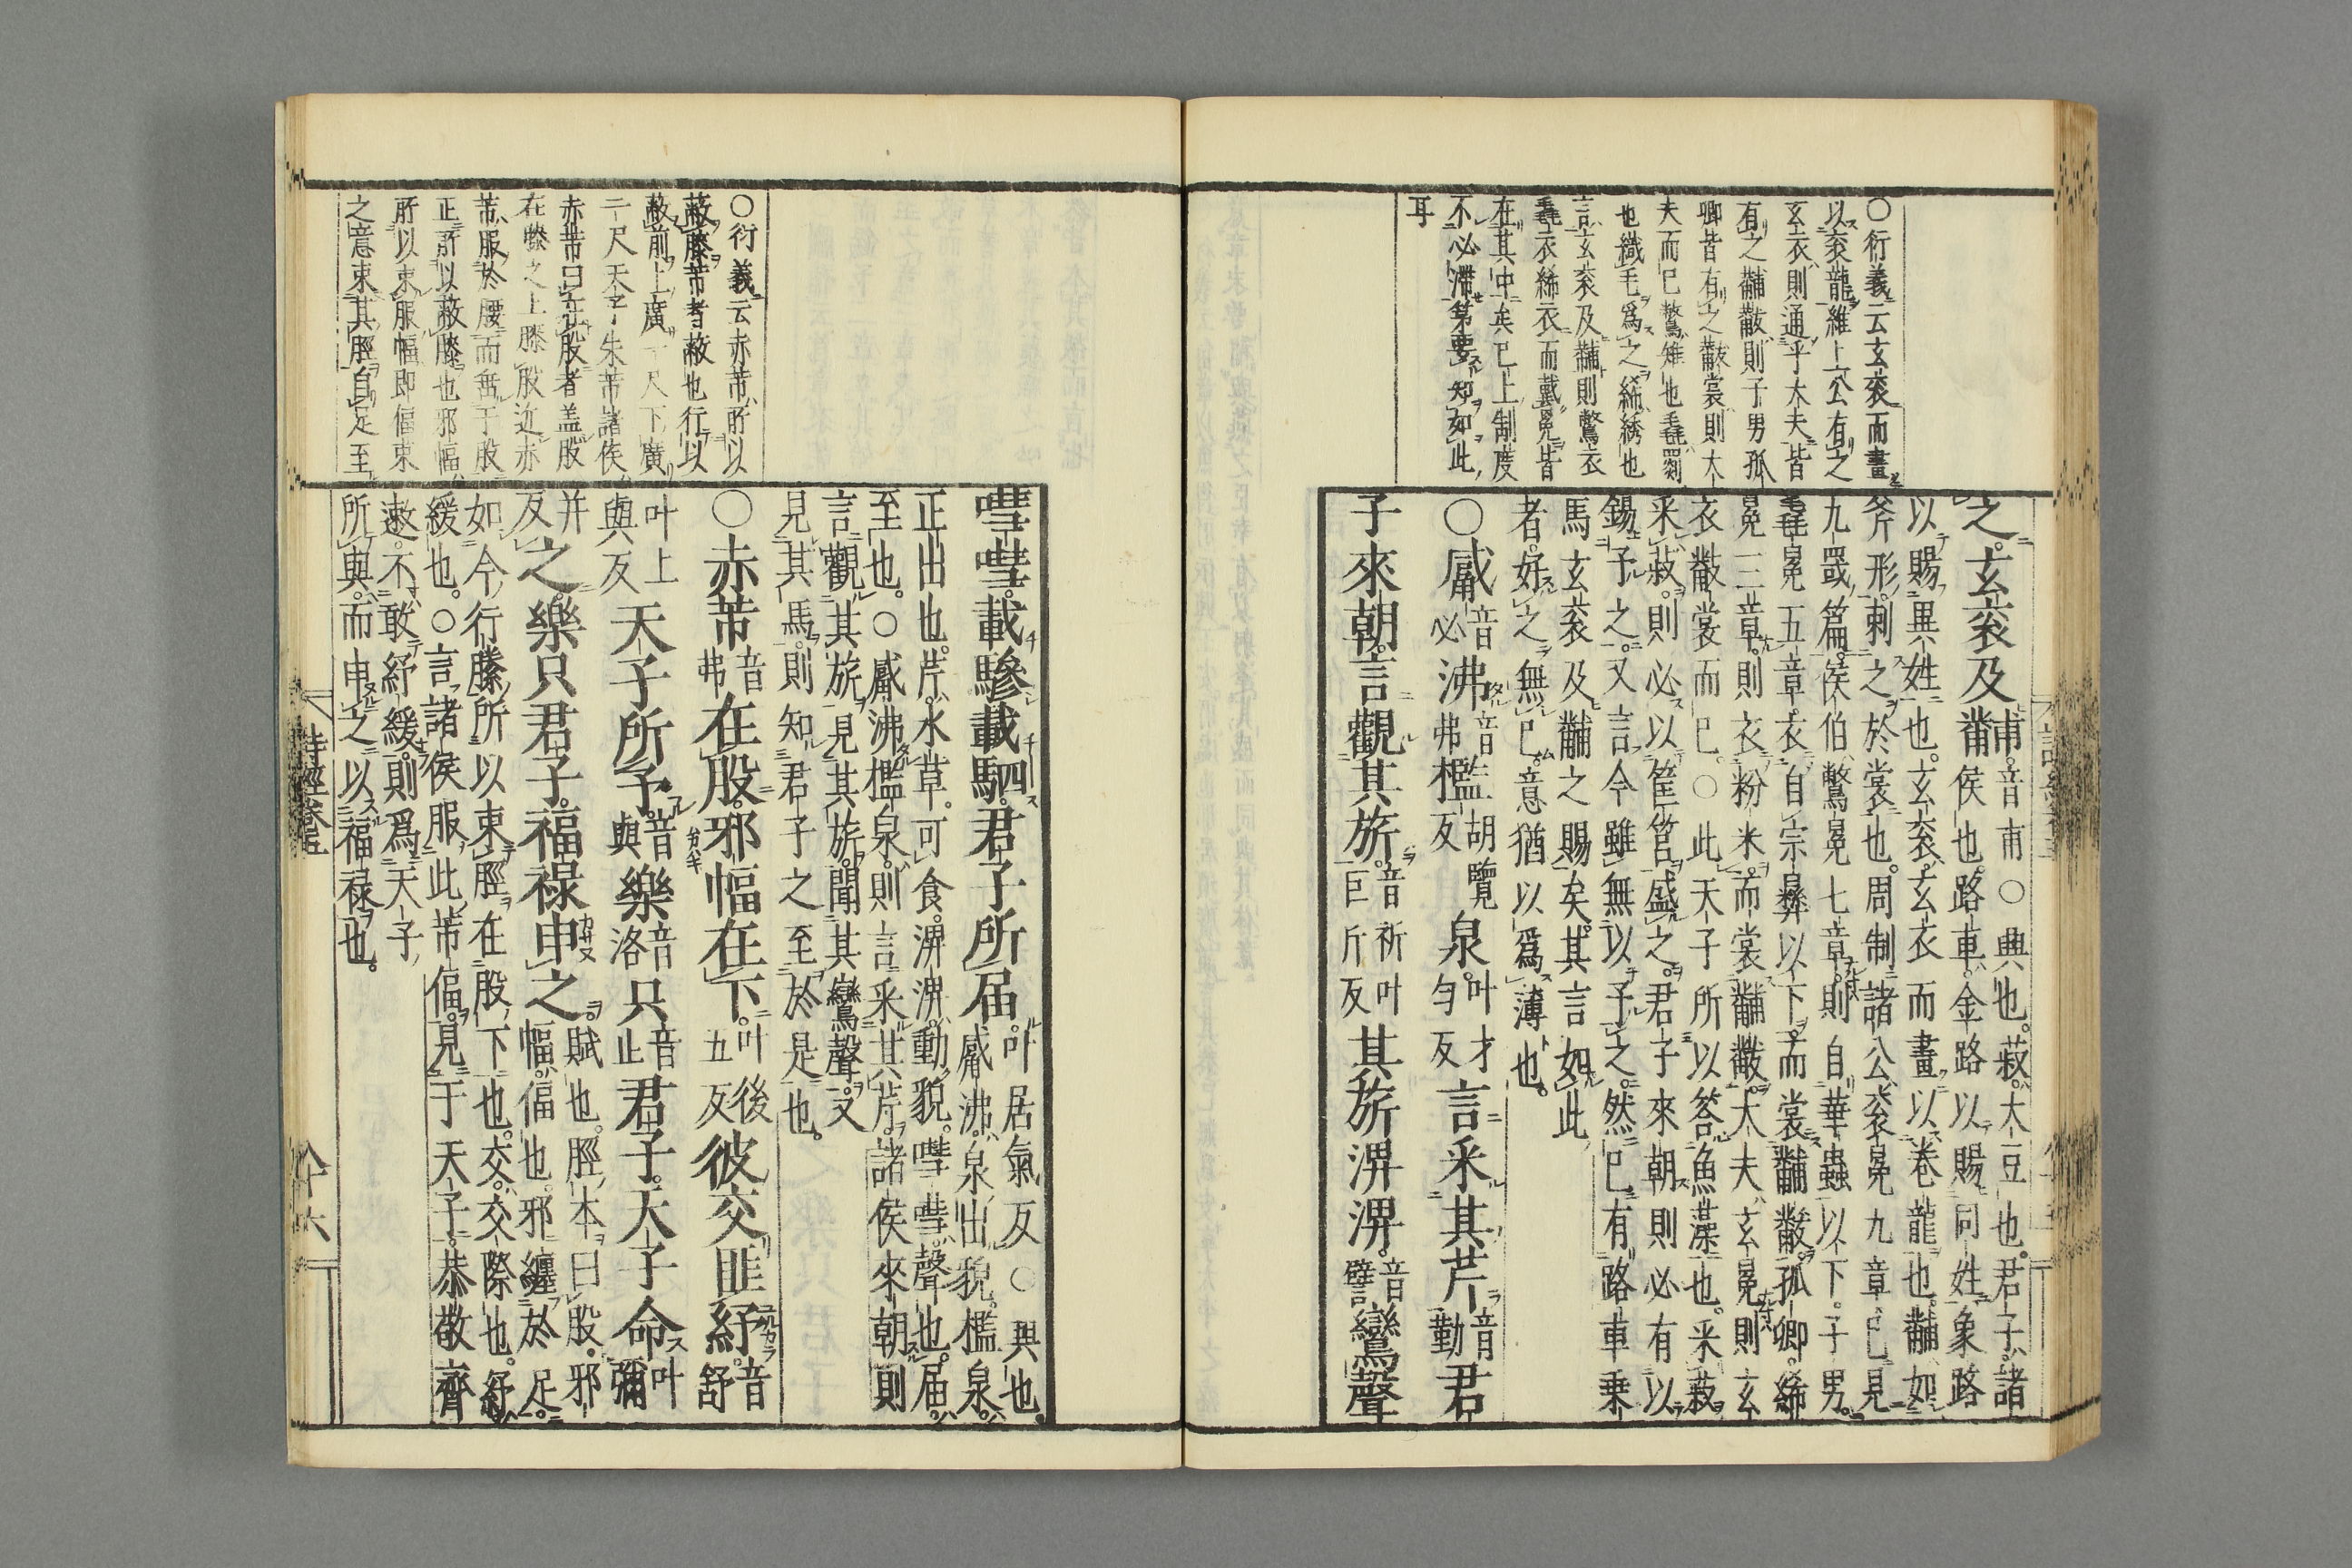 ○衍義云玄袞而畫
以袞龍維上公有之
玄衣則通乎大夫皆
有之黼黻則子男孤
卿皆有之黻裳則大
夫而已鷩雉也毳罽
也織毛爲之絺綉也
言玄袞及黼則鷩衣
毳衣絺衣而戴冕皆
在其中矣已上制度
不必滯第要知如此
耳
之。玄袞及黼。音甫○興也。菽。大豆也。君子。諸
侯也。路車。金路以賜同姓。象路
以賜異姓也。玄袞。玄衣而畫以卷龍也。黼如
斧形。刺之於裳也。周制諸公袞冕九章已見
九罭篇。侯伯鷩冕七章。則自華蟲以下。子男。
毳冕五章。衣自宗彝以下。而裳黼黻。孤卿。絺
冕三章。則衣粉米。而裳黼黻。大夫玄冕則玄
衣黻裳而已。○此天子所以答魚藻也。采菽
采菽。則必以筐筥盛之。君子來朝則必有以
錫予之。又言今雖無以予之。然已有路車乗
馬玄袞及黼之賜矣。其言如此
者。好之無已。意猶以爲薄也。
○觱音必沸音弗檻胡覽反泉。叶才勻反言采其芹音勤君
子來朝。言觀其旂。音祈叶巨斤反其旂淠淠。音譬鸞聲
嘒嘒。載驂載駟。君子所届。叶居氣反○興也。
觱沸。泉出貌。檻泉。
正出也。芹。水草。可食。淠淠。動貌。嘒嘒。聲也。届。
至也。○觱沸檻泉。則言采其芹。諸侯來朝則
言觀其旂。見其旂。聞其鸞聲。又
見其馬。則知君子之至於是也。
○衍義云赤芾所以
蔽膝芾者蔽也行以
蔽前上廣一尺下廣
二尺天子朱芾諸侯
赤芾曰在股者盖股
在膝之上膝股近赤
芾服於腰而垂于股
正所以蔽膝也邪幅
所以束服幅即偪束
之意束其脛自足至
○赤芾音弗在股。邪幅在下。叶後五反彼交匪紓。音舒
叶上與反天子所予。音與樂音洛只音止君子。天子命叶彌
并反之。樂只君子。福禄申之。賦也。脛本曰股。邪
幅。偪也。邪纏於足。
如今行縢。所以束脛。在股下也。交。交際也。紓。
緩也。○言諸侯服此芾偪。見于天子。恭敬齊
遬。不敢紓緩。則爲天子
所與。而申之以福禄也。
詩經卷五
八十六